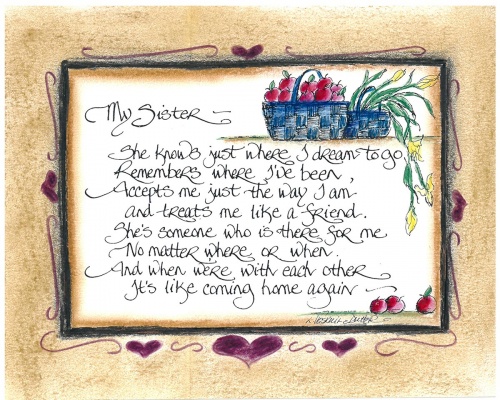 My Sister
She knows just where I dream to go,
Remembers where I've been,
Accepts me just the way I am
and treats me like a friend.
She's someone who is there for me
No matter where or when.
And when we're with each other
It's like coming home again